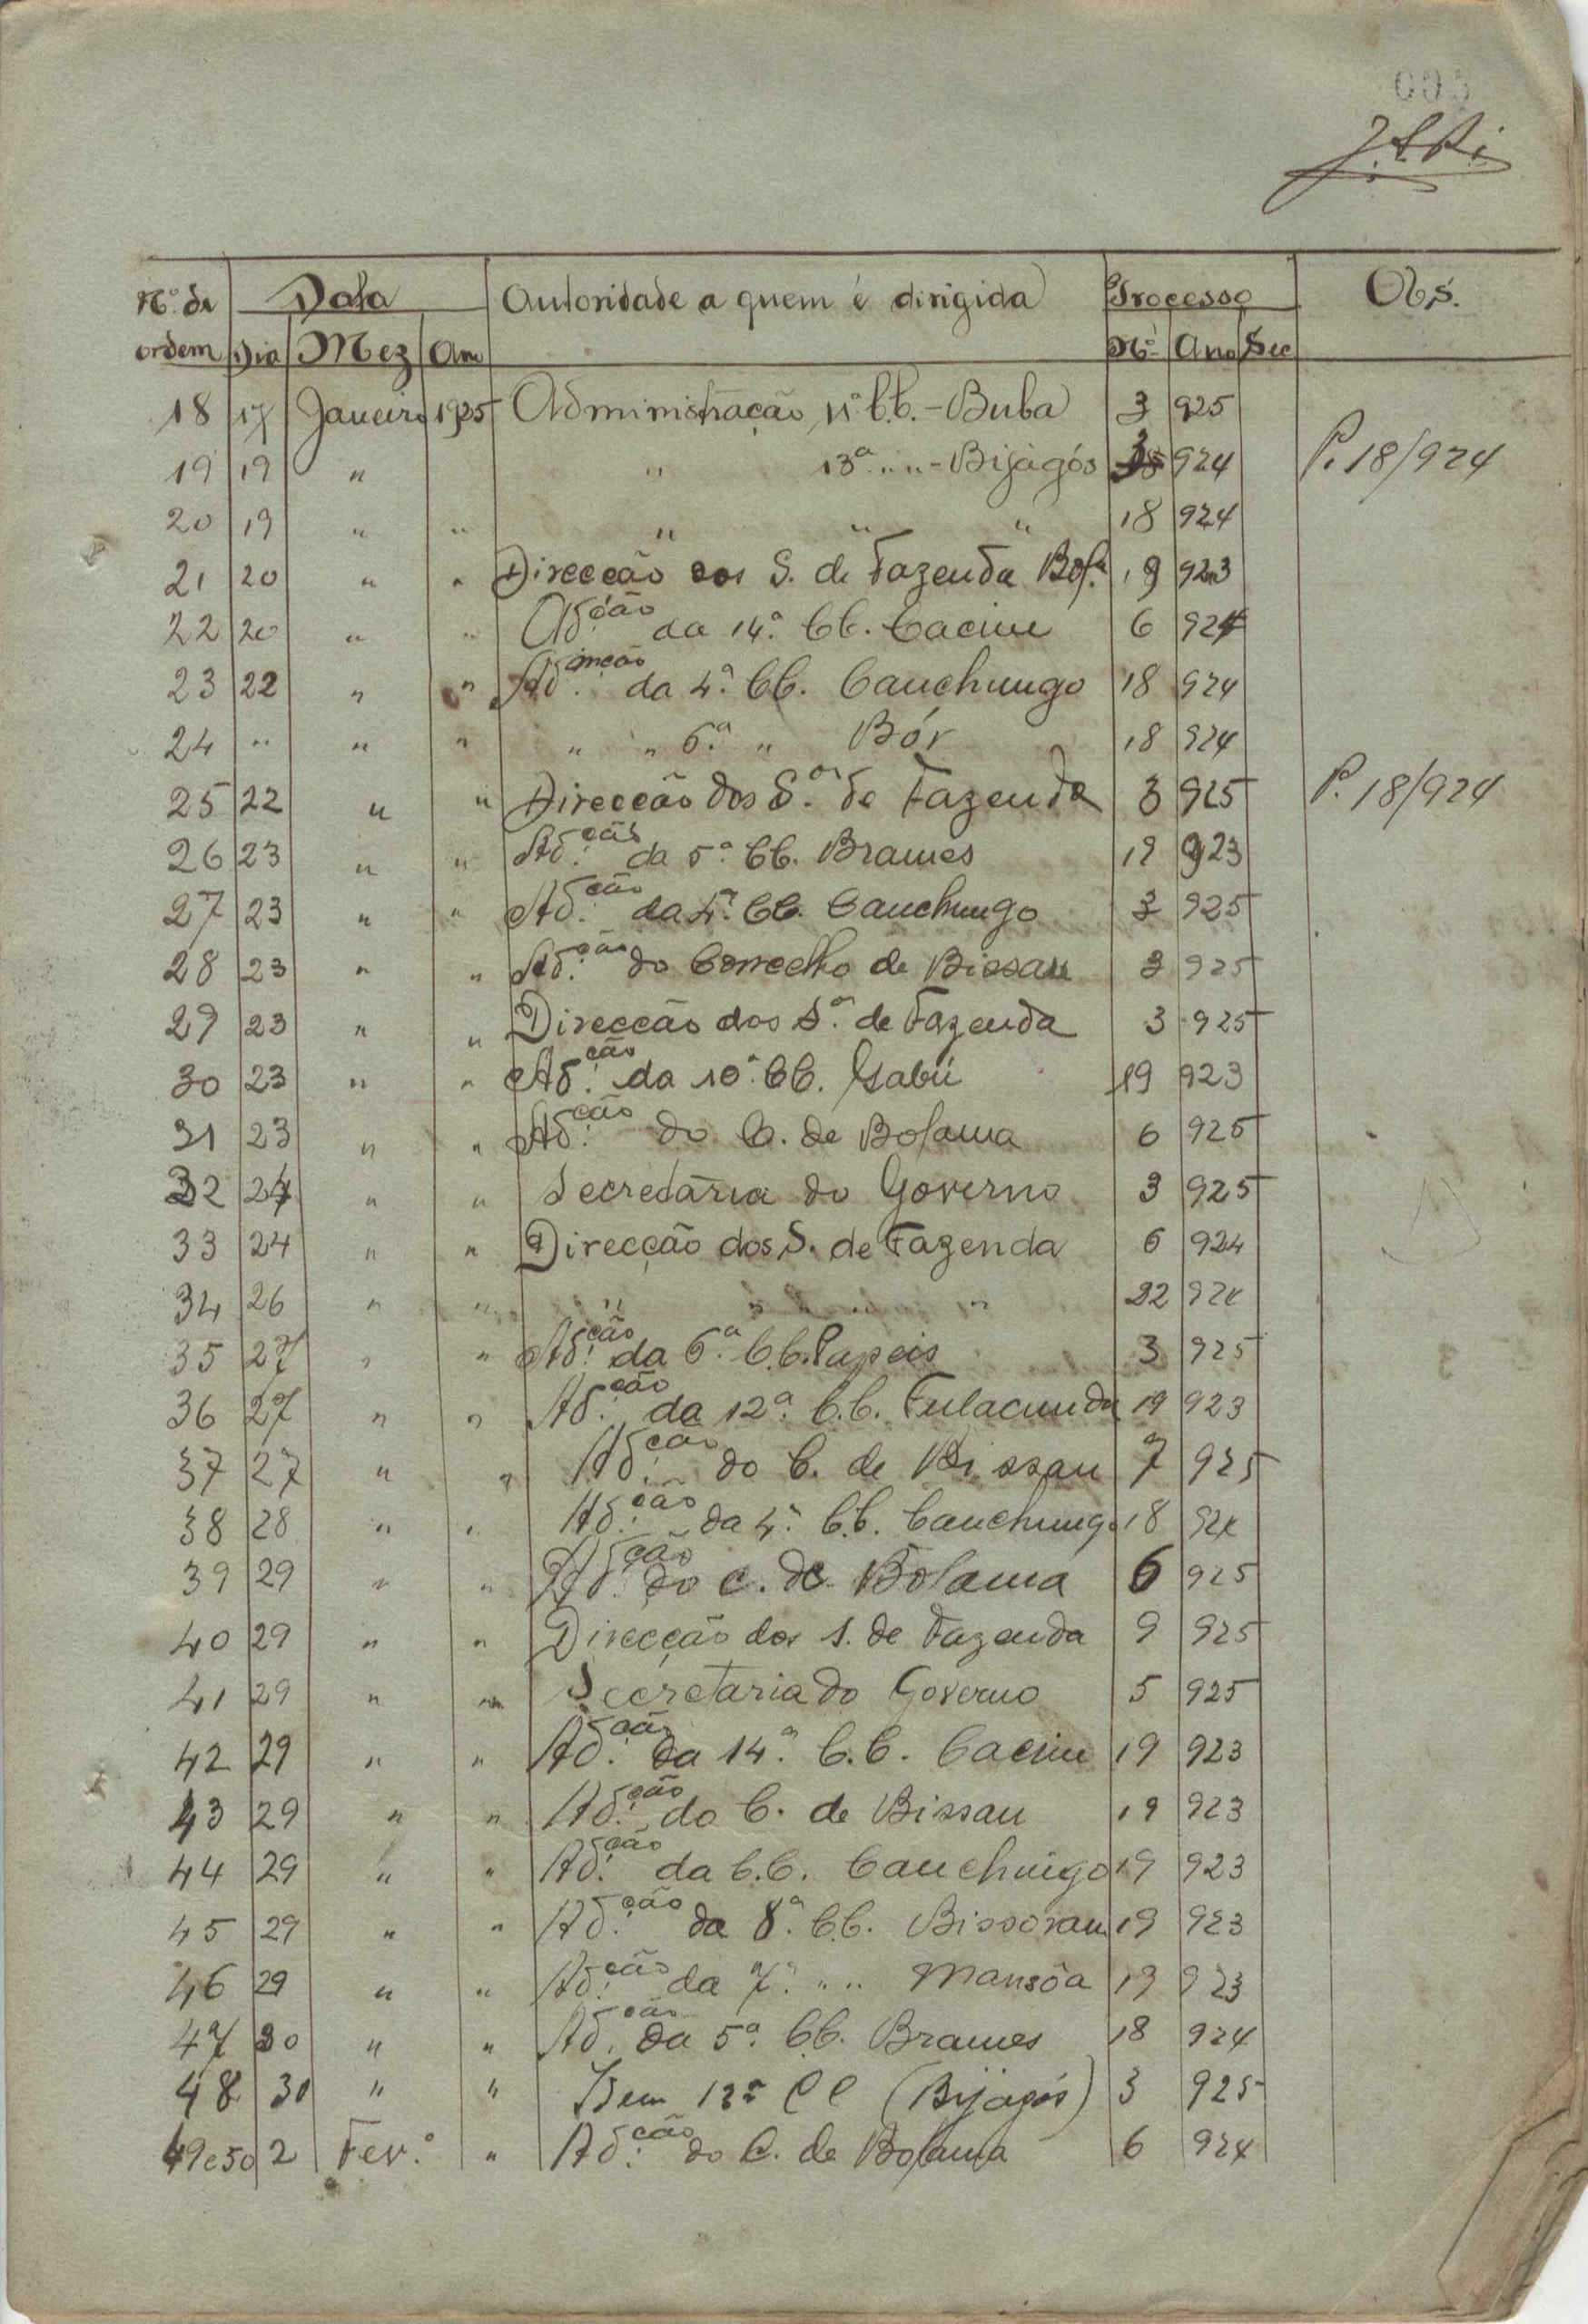 005
Nº de Data Autoridade a quem é dirigida Processo Obs.
ordem Dia Mez Ano Nº Ano Sec
18 17 Janeiro 1925 Administração 11ª C.C. - Buba 3 925
19 19 " " 13ª " " - Bijagós 924 P. 18/924
20 19 " " " " " 18 924
21 20 " " Direcção dos S. de Fazenda Bolª 19 923
22 20 " " Ad.ção da 14ª CC. Cacine 6 924
23 22 " " Ad.mção da 4ª CC. Cauchungo 18 924
24 " " " " " 6ª " Bór 18 924
25 22 " " Direcção dos S.os de Fazenda 3 925 P. 18/924
26 23 " " Ad.ção da 5ª CC. Brames 19 923
27 23 " " Ad.ção da 4ª CC. Cauchungo 3 925
28 23 " " Ad.ção do Concelho de Bissau 3 925
29 23 " " Direcção dos S.os de Fazenda 3 925
30 23 " " Ad.ção da 10ª CC. Gabú 19 923
31 23 " " Ad.ção do C. de Bolama 6 925
32 24 " " Secretaria do Governo 3 925
33 24 " " Direcção dos S. de Fazenda 6 924
34 26 " " " " " 22 924
35 27 " " Ad.ção da 6ª C.C. Papeis 3 925
36 27 " " Ad.ção da 12ª C.C. Fulacunda 19 923
37 27 " " Ad.ção do C. de Bissau 7 925
38 28 " " Ad.ção da 4ª C.C. Cauchungo 18 924
39 29 " " Ad.ção do C. de Bolama 6 925
40 29 " " Direcção dos S. de Fazenda 9 925
41 29 " " Secretaria do Governo 5 925
42 29 " " Ad.ção da 14ª C.C. Cacine 19 923
43 29 " " Ad.ção do C. de Bissau 19 923
44 29 " " Ad.ção da C.C. Cauchungo 19 923
45 29 " " Ad.ção da 8ª C.C. Bissoram 19 923
46 29 " " Ad.ção da 7ª " " Mansôa 19 923
47 30 " " Ad.ção da 5ª CC. Brames 18 924
48 30 " " Idem 13ª CC (Bijagós) 3 925
49 e 50 2 Fev.º " Ad.ção do C. de Bolama 6 924